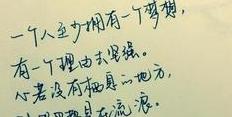 一个人至少拥有一个梦想,
有一个理由去坚强。
心若没有栖息的地方,
到哪里都是在流浪。